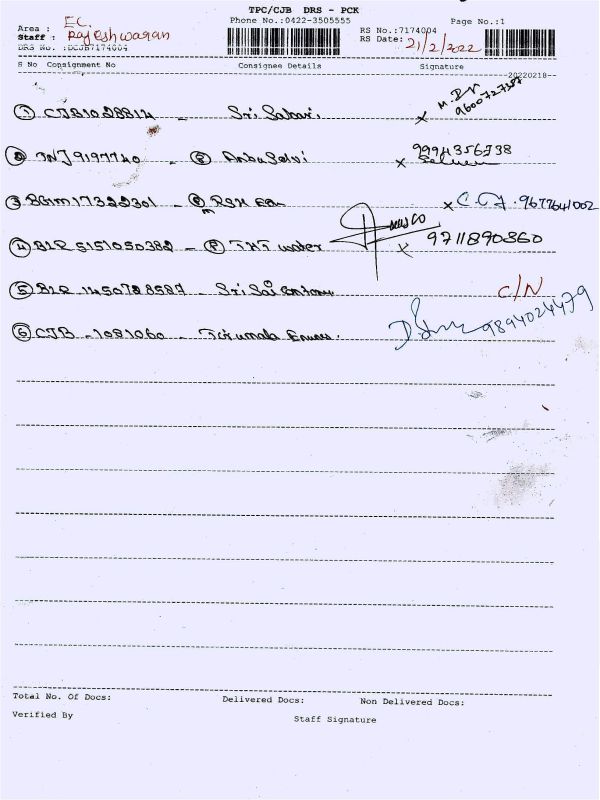 TPC/CJB DRS - PCK
Phone No.:0422-3505555 Page No.:1
Area : E.C. RS No.:7174004
Staff : Rajeshwaran RS Date: 21/2/2022
DRS No. :DCJB7174004
S No Consignment No Consignee Details Signature
20220218
① CJB1028814 - Sri Sabari. x M. 9600727387
② 9197740 - Anbu Selvi x 9994356738
③ BGM17322301 - RSH x C.C. 9677641002
④ BLR 5151050382 - THT water x 9711890360
⑤ BLR 1450728587 - Sri Sai C/N
⑥ CJB - 1081060 - Tirumala 9894024479
Total No. Of Docs: Delivered Docs: Non Delivered Docs:
Verified By Staff Signature